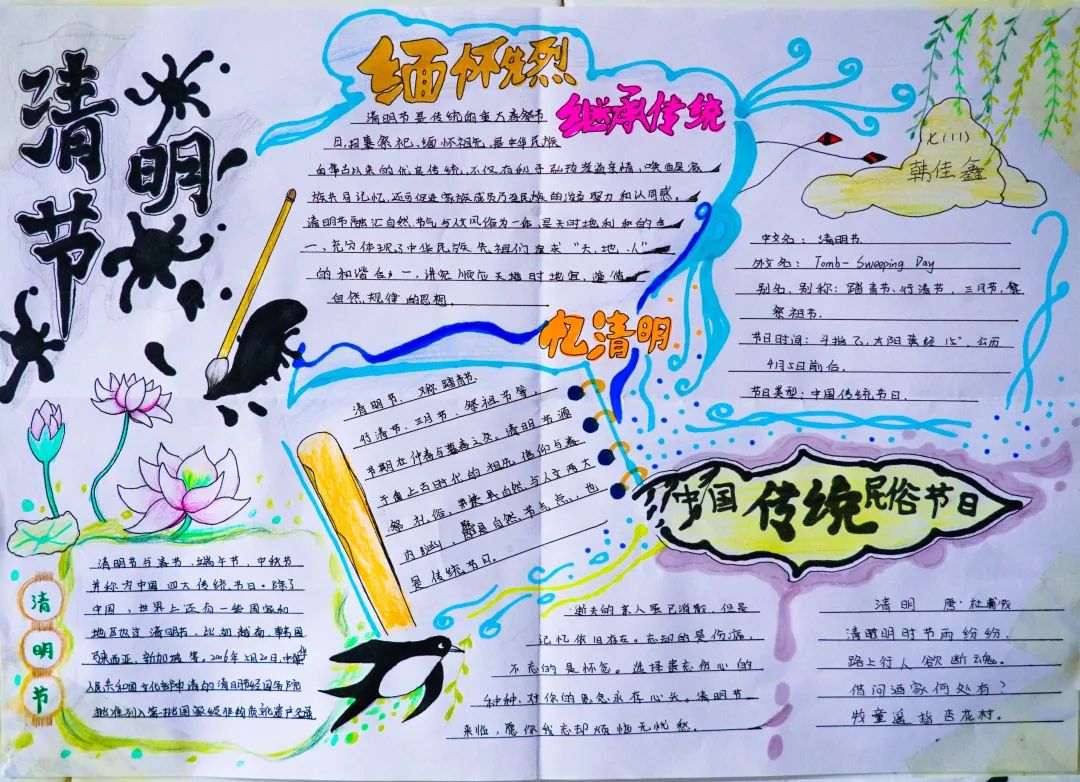 清明节
缅怀先烈
继承传统
清明节是传统的重大春祭节
日,扫墓祭祀、缅怀祖先,是中华民族
自古以来的优良传统,不仅有利于弘扬孝道亲情、唤醒家
族共同记忆,还可促进家族成员乃至民族的凝聚力和认同感。
清明节融汇自然节气与人文风俗为一体,是天时地利人和的合
一,充分体现了中华民族先祖们追求“天、地、人”
的和谐合一,讲究顺应天时地宜、遵循
自然规律的思想。
七(11)
韩佳鑫
中文名:清明节
外文名:Tomb-Sweeping Day
别名、别称:踏青节、行清节、三月节、祭
祭祖节.
节日时间:斗指乙,太阳黄经15°,公历
4月5日前后.
节日类型:中国传统节日.
忆清明
清明节、又称踏青节、
行清节、三月节、祭祖节等,
节期在仲春与暮春之交。清明节源
于自上古时代的祖先信仰与春
祭礼俗,兼具自然与人文两大
内涵,既是自然节气点,也
是传统节日。
中国传统民俗节日
清明节与春节、端午节、中秋节
并称为中国四大传统节日。除了
中国,世界上还有一些国家和
地区也过清明节,比如越南、韩国
马来西亚、新加坡等。2006年5月20日,中华
人民共和国文化部申请的清明节经国务院
批准列入第一批国家级非物质文化遗产名录
清明节
逝去的亲人虽已消散,但是
记忆依旧存在。忘却的是伤痛,
不忘的是怀念。选择忘却伤心的
种种,对你的思念永存心头。清明节
来临,愿你我忘却烦恼无忧愁。
清明 唐·杜牧
清明时节雨纷纷.
路上行人欲断魂。
借问酒家何处有?
牧童遥指杏花村。